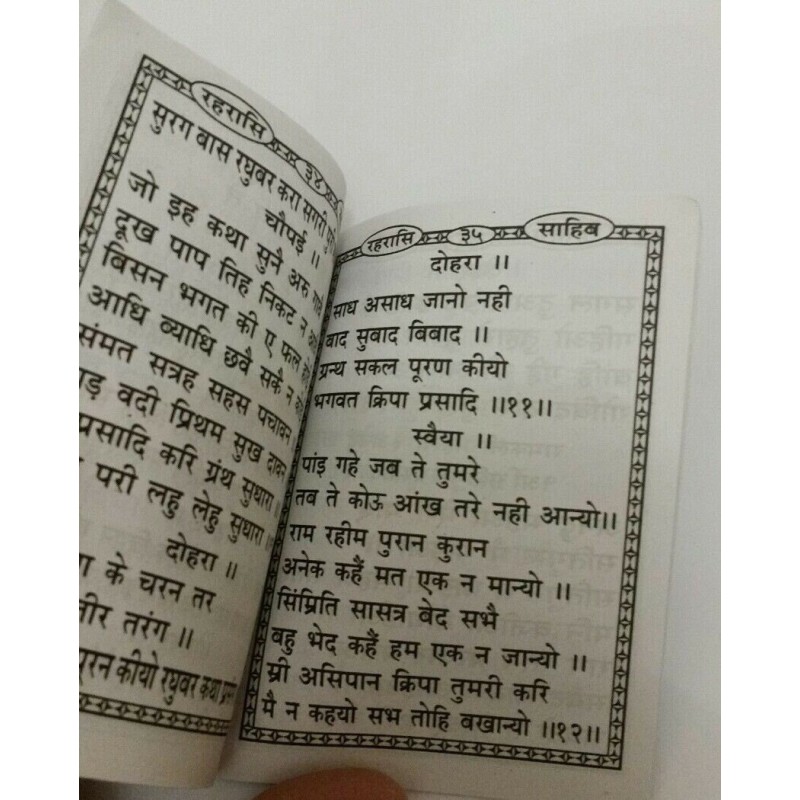 रहरासि ३४
सुरग बास रघुबर करा सगरी
चौपई ॥
जो इह कथा सुनै अरु गावै
दूख पाप तिह निकट न
बिसन भगत की ए फल
आधि ब्याधि छवै सकै न
संमत सत्रह सहस पचावन
वदी प्रिथम सुख दावन
प्रसादि करि ग्रंथ सुधारा ।
परी लहु लेहु सुधारा ॥
दोहरा ॥
के चरन तर
तीर तरंग ॥
पूरन कीयो रघुबर कथा
रहरासि ३५ साहिब
दोहरा ॥
साध असाध जानो नही
बाद सुबाद बिबाद ॥
ग्रन्थ सकल पूरण कीयो
भगवत क्रिपा प्रसादि ॥११॥
स्वैया ॥
पांइ गहे जब ते तुमरे
तब ते कोऊ आंख तरे नही आन्यो॥
राम रहीम पुरान कुरान
अनेक कहैं मत एक न मान्यो ॥
सिंम्रिति सासत्र बेद सभै
बहु भेद कहैं हम एक न जान्यो ॥
स्री असिपान क्रिपा तुमरी करि
मै न कहयो सभ तोहि बखान्यो ॥१२॥